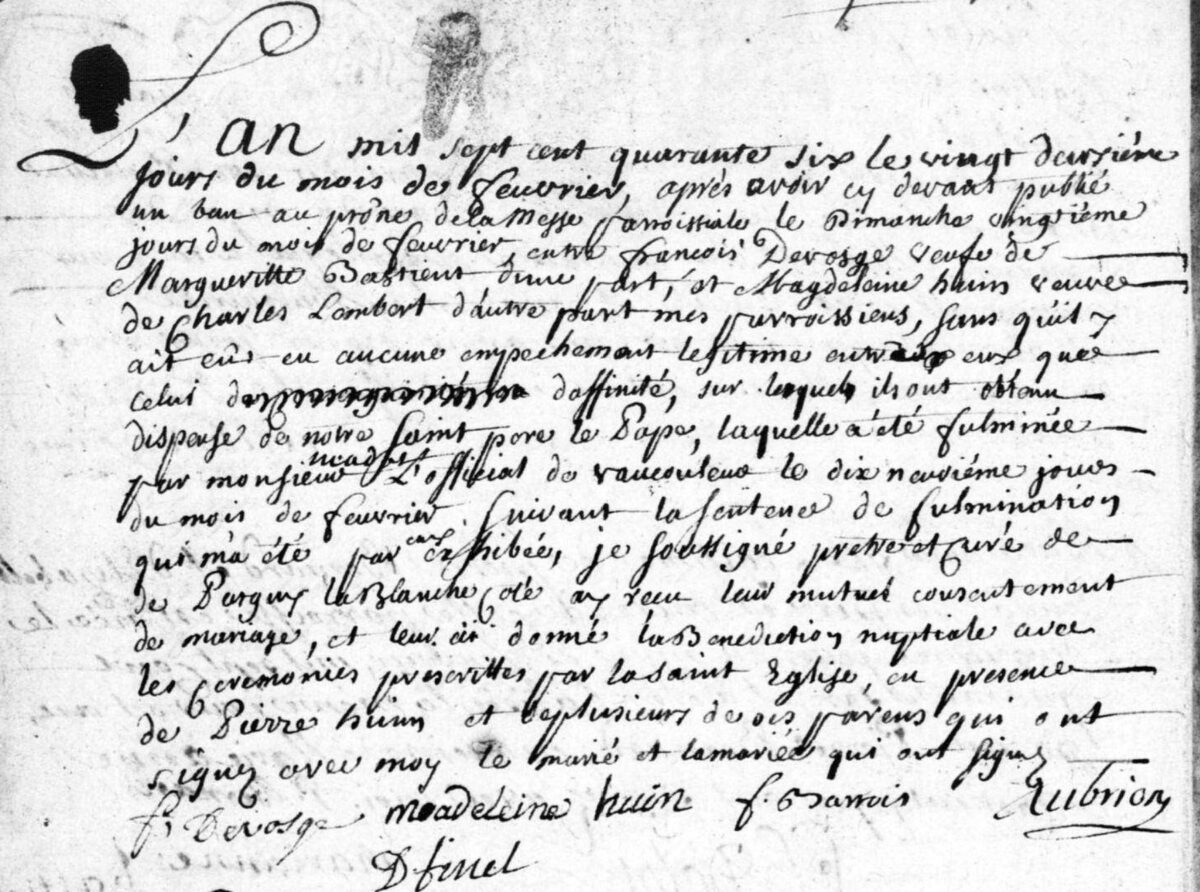 L'an mil sept cent quarante six le vingt derriéme
jours du mois de feuvrier, aprés avoir cy devant publié
un ban au prône de la Messe parroissiale le Dimanche vingtiéme
jours du mois de feuvrier entre françois Devosge veufe de
Margueritte Bastient d'une part, et Magdeleine huin veuve
de Charles Lambert d'autre part mes parroissiens, sans qu'il y
ait eû eu aucune empechement legitime entre eux que
celui d'affinité, sur lequels ils ont obtenu
dispense de notre Saint pere le Pape, laquelle a été fulminée
par monsieur L'official de vaucouleur le dix neuviéme jours
du mois de feuvrier suivant la sentence de fulmination
qui m'a été par eux exhibée, je soussigné prêtre et curé de
de Pargny la Blanche Côté ay recu leur mutuel consentement
de mariage, et leur ai donné la Benediction nuptiale avec
les ceremonies prescrittes par la saint Eglise, en presence
de Pierre huin et de plusieurs de parens qui ont
signez avec moy le marié et la mariée qui ont signez
f. Devosge madeleine huin f. Barrois Aubrion
D finel